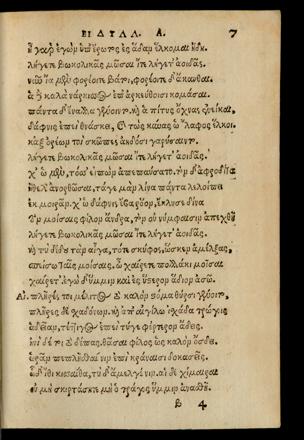 ΕΙΔΥΛΛ. Α. 7
ἦ γὰρ ἐγὼν ὑπ' ἔρωτος ἐς ᾅδαν ἕλκομαι ἤδη.
λήγετε βωκολικᾶς μῶσαι ἴτε λήγετ' ἀοιδᾶς.
νῦν ἴα μὲν φορέοιτε βάτοι, φορέοιτε δ' ἄκανθαι.
ἁ δὲ καλὰ νάρκισσος ἐπ' ἀρκεύθοισι κομάσαι.
πάντα δ' ἔναλλα γένοιντο. καὶ ἁ πίτυς ὄχνας ἐνείκαι,
δάφνις ἐπεὶ θνάσκει, καὶ τὼς κύνας ὧλαφος ἕλκοι.
κἠξ ὀρέων τοὶ σκῶπες ἀηδόσι γαρύσαιντο.
λήγετε βωκολικᾶς μῶσαι ἴτε λήγετ' ἀοιδᾶς.
χ' ὡ μὲν, τόσσ' εἰπὼν ἀπεπαύσατο. τὴν δ' ἀφροδίτα
ἤθελ' ἀνορθῶσαι, τάγε μὰν λίνα πάντα λελοίπει
ἐκ μοιρᾶν. χ' ὡ δάφνις ἔβα ῥόον, ἔκλυσε δίνα
τὸν μοίσαις φίλον ἄνδρα, τὸν οὐ νύμφαισιν ἀπεχθῆ
λήγετε βωκολικᾶς μῶσαι ἴτε λήγετ' ἀοιδᾶς.
καὶ τὺ δίδου τὰν αἶγα, τότε σκύφος, ὥς κεν ἀμέλξας,
σπείσω ταῖς μοίσαις, ὦ χαίρετε πολλάκι μοῖσαι
χαίρετ'. ἐγὼ δ' ὔμμιν καὶ ἐς ὕστερον ἅδιον ᾀσῶ.
Αἰ. πλῆρές τοι μέλιτος τὸ καλὸν στόμα θύρσι γένοιτο,
πλῆρες δὲ σχαδόνων. καὶ ἀπ' αἰγίλω ἰσχάδα τρώγοις
ἁδεῖαν, τέττιγος ἐπεὶ τύγε φέρτερον ᾄδεις.
ἠνὶ δέ τοι τὸ δέπας. θᾶσαι φίλος ὡς καλὸν ὄσδει.
ὡρᾶν πεπλύσθαί νιν ἐπὶ κράναισι δοκασεῖς.
ὧδ' ἴθι κισσαίθα, τὺ δ' ἄμελγέ νιν. αἱ δὲ χίμαιραι
οὐ μὴ σκιρτάσητε μὴ ὁ τράγος ὔμμιν ἀναστῇ.
B 4